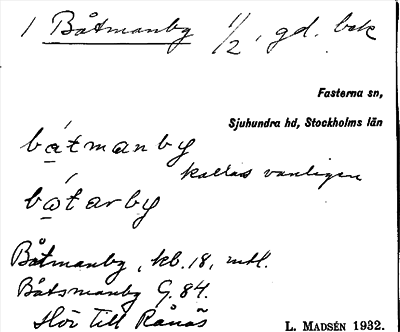 1 Båtmanby 1/2, gd. bok
Fasterna sn,
Sjuhundra hd, Stockholms län
bátmanby
kallas vanligen
bátarby
Båtmanby, kb. 18, mtl.
Båtsmanby G. 84.
Hör till Rånäs
L. MADSÉN 1932.